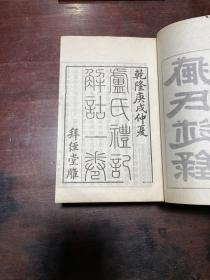 臧氏述錄
乾隆庚戌仲夏
盧氏禮記
解詁一卷
拜經堂雕